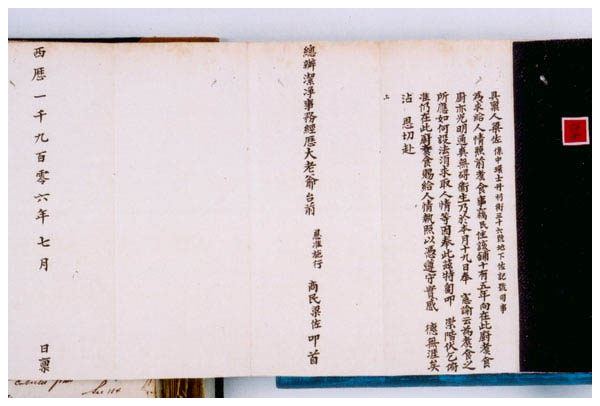 具稟人梁佐係中環士丹利街三十六號地下佐記號司事
為求給人情照前煮食事竊民住該鋪十有五年向在此厨煮食
厨亦光明通爽無碍衛生乃於本月十九日奉 憲諭云為煮食之
所應如何設法消求取人情等因奉此茲特匍叩 崇階伏乞俯
准仍在此厨煮食賜給人情執照以憑遵守實感 德無涯矣
沾 恩切赴
上
總辦潔淨事務經歷大老爺台前 恩准施行 商民梁佐 叩首
西歷一千九百零六年 七月 日稟